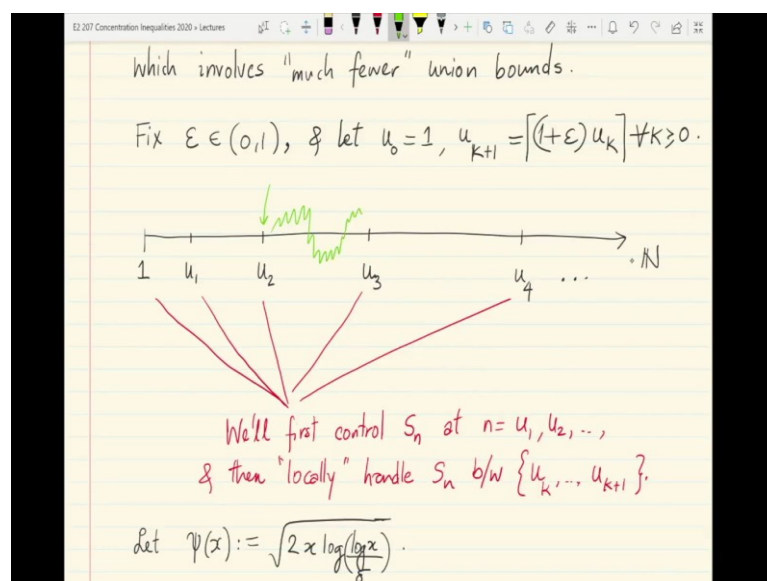 E2 207 Concentration Inequalities 2020 » Lectures
which involves "much fewer" union bounds.
Fix ε ∈ (0,1), & let u₀ = 1, u_{K+1} = ⌈(1+ε) u_K⌉ ∀K ≥ 0.
1 u₁ u₂ u₃ u₄ ... ℕ
We'll first control Sₙ at n = u₁, u₂, ..,
& then "locally" handle Sₙ b/w {u_K, .., u_{K+1}}.
Let ψ(x) := √(2x log(log x/δ)).